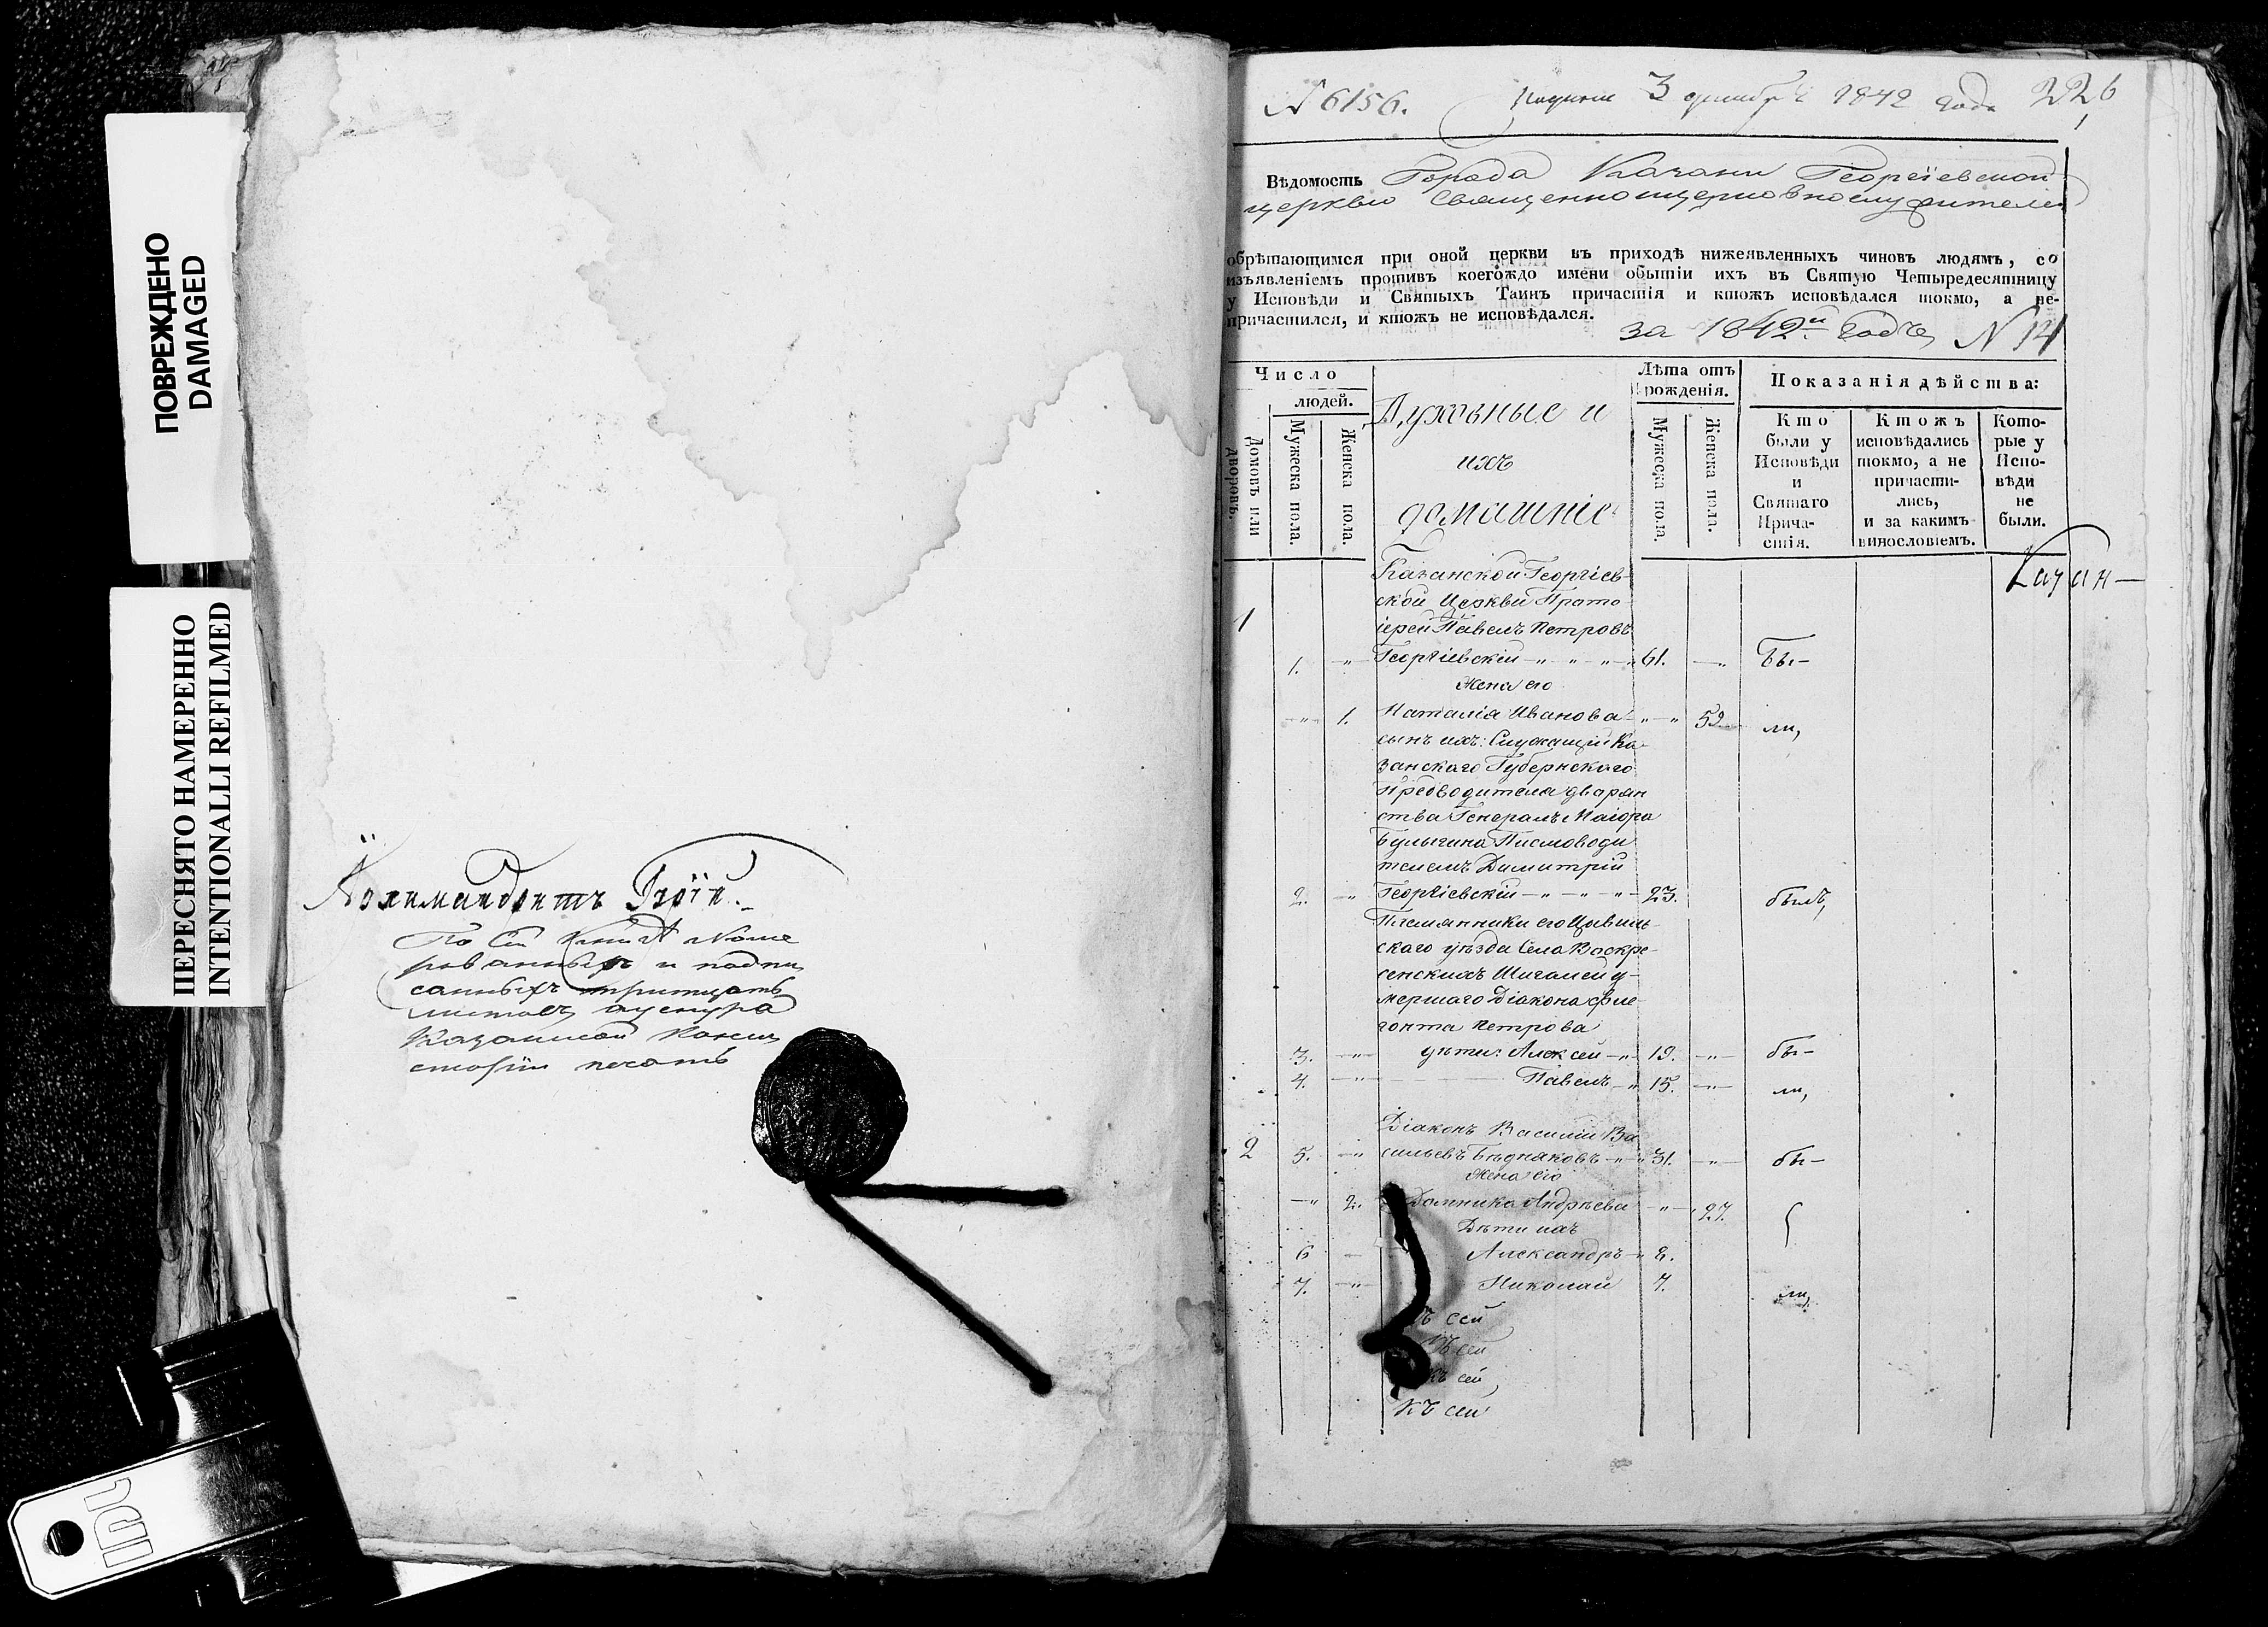 ПОВРЕЖДЕНО
DAMAGED
ПЕРЕСНЯТО НАМЕРЕННО
INTENTIONALLI REFILMED
Архимандритъ
По сей книгѣ
и подпи
санныхъ тритцать
листовъ
Казанской Конси
сторіи печать
N 6156.
3 1842 года 226
Вѣдомость Города Казани Георгіевской
церкви Священноцерковнослужителей
обрѣтающимся при оной церкви въ приходѣ нижеявленныхъ чиновъ людямъ, со
изъявленіемъ противъ коегождо имени обытіи ихъ въ Святую Четыредесятницу
у Исповѣди и Святыхъ Таинъ причастія и ктожъ исповѣдался токмо, а не-
причастился, и ктожъ не исповѣдался.
за 1842й годъ, N 14
Число
людей.
Домовъ или дворовъ.
Мужеска пола.
Женска пола.
Духовные и
ихъ
домашніе
Лѣта отъ
рожденія.
Мужеска пола.
Женска пола.
Показанія дѣйства:
Кто
были у
Исповѣди
и
Святаго
Прича-
стія.
Ктожъ
исповѣдались
токмо, а не
причасти-
лись,
и за какимъ
винословіемъ.
Кото-
рые у
Испо-
вѣди
не
были.
Казан-
Казанской Георгіев-
ской Церкви Прото
1 іерей Павелъ Петровъ
1. Георгіевскій 61. Бы-
Жена его
1. Наталія Иванова 52 ли,
сынъ ихъ: Служащій Ка-
занскаго Губернскаго
Предводителя дворян
ства Генералъ Маіора
Булыгина Писмоводи
телемъ Димитрій
2. Георгіевскій 23. былъ,
Племянники его Цывиль-
скаго уѣзда Села Воскре-
сенскихъ Шигалей у-
мершаго Діакона Фле-
гонта Петрова
3. дѣти: Алексей 19. бы-
4. Павелъ 15. ли,
Діаконъ Василій Ва
2 5. сильевъ Бѣдняковъ 31. бы-
Жена его
2. Домника Андрѣева 27.
Дѣти ихъ
6 Александръ 8.
7. Николай 7. ли,
Къ сей
Къ сей
Къ сей,
Къ сей